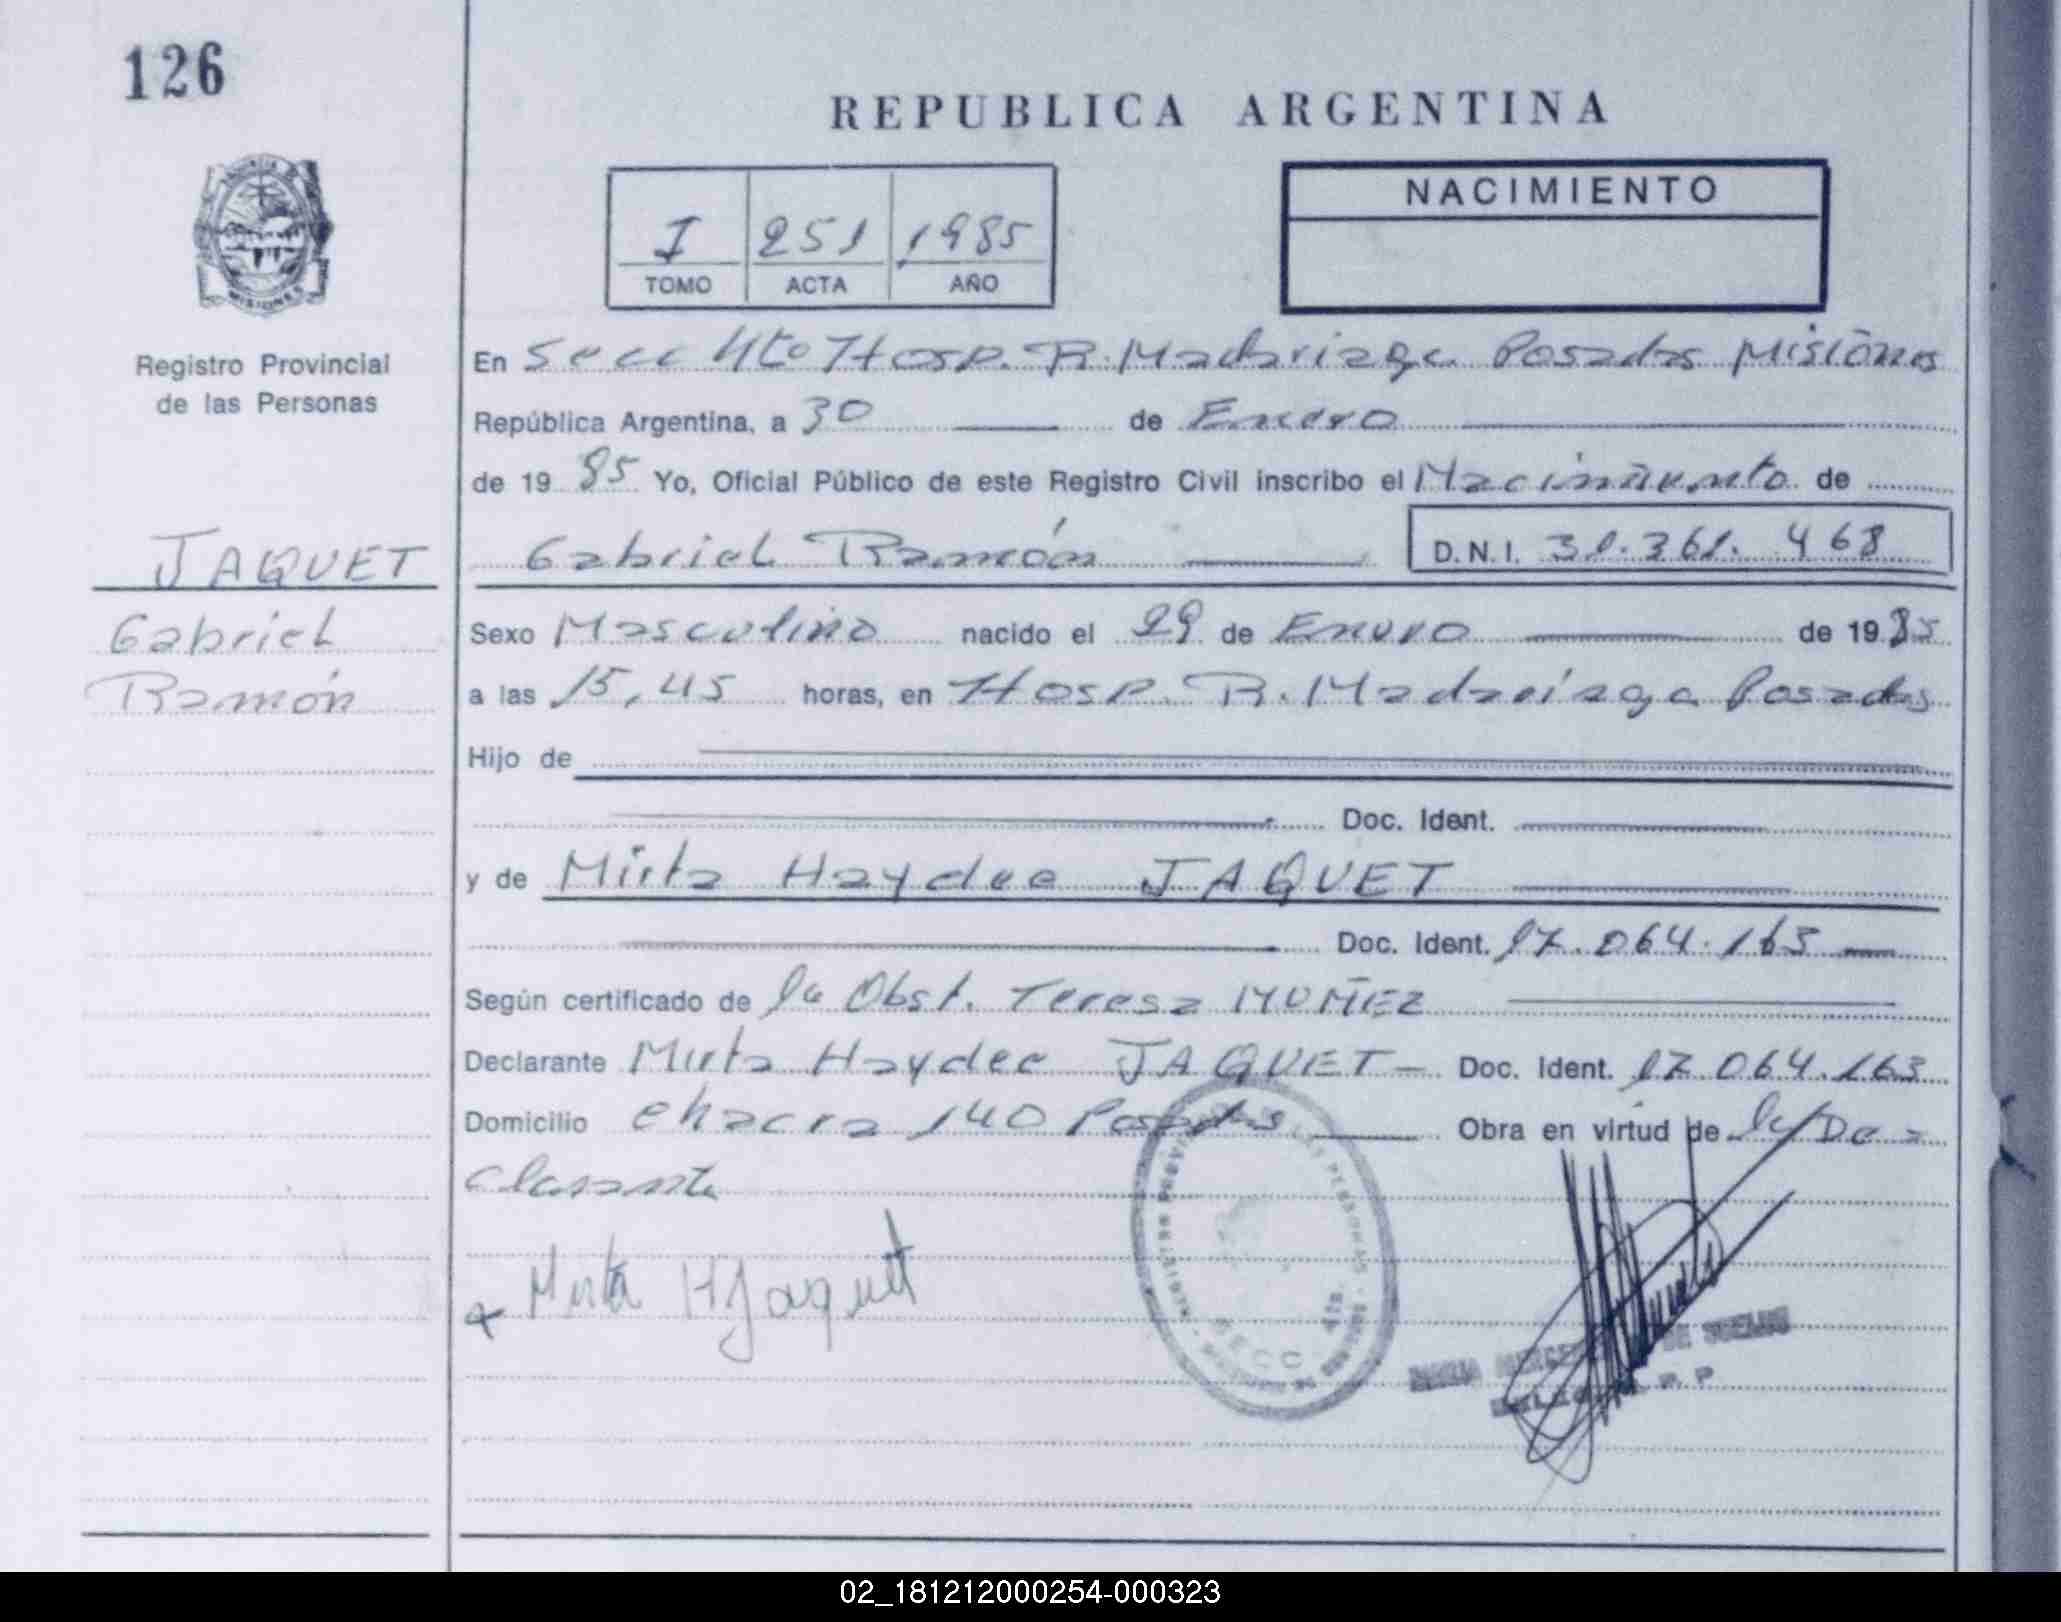 126
REPUBLICA ARGENTINA
NACIMIENTO
I 251 1985
TOMO ACTA AÑO
MISIONES
Registro Provincial
de las Personas
En Secc 4to Hosp. R. Madariaga Posadas Misiones
República Argentina, a 30 de Enero
de 19 85 Yo, Oficial Público de este Registro Civil inscribo el Nacimiento de
JAQUET
Gabriel Ramón D.N.I. 31.361.468
Gabriel
Ramón
Sexo Masculino nacido el 29 de Enero de 19 85
a las 15,45 horas, en Hosp. R. Madariaga Posadas
Hijo de
Doc. Ident.
y de Mirta Haydee JAQUET
Doc. Ident. 17.064.163
Según certificado de la Obst. Teresa MUÑEZ
Declarante Mirta Haydee JAQUET - Doc. Ident. 17.064.163
Domicilio chacra 140 Posadas Obra en virtud de la/De
clarante
Mirta H Jaquet
SECC. 4ta.
02_181212000254-000323